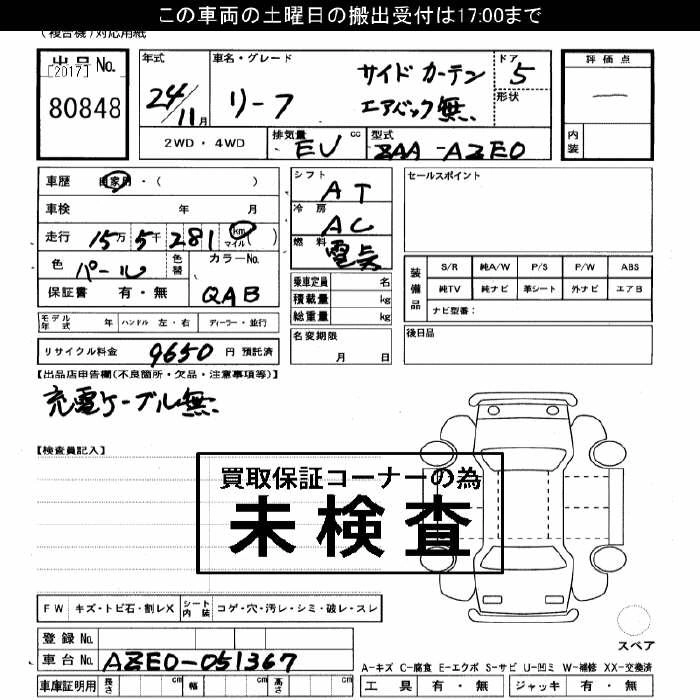 この車両の土曜日の搬出受付は17:00まで
(複合機)対応用紙
出品No. [2017] 80848
年式 24/11月
車名・グレード リーフ サイドカーテンエアバック無
ドア 5
形状
評価点 —
内装
2WD・4WD
排気量 EV cc
型式 ZAA-AZE0
車歴 自家用・( )
車検 年 月
走行 15万5千281 km マイル ( )
色 パール 色替 カラーNo. QAB
保証書 有・無
シフト AT
冷房 AC
燃料 電気
乗車定員 名
積載量 kg
総重量 kg
名変期限 月 日
セールスポイント
装備品 S/R 純A/W P/S P/W ABS
純TV 純ナビ 革シート 外ナビ エアB
ナビ型番:
後日品
モデル年式 年 ハンドル 左・右 ディーラー・並行
リサイクル料金 9650 円 預託済
【出品店申告欄(不良箇所・欠品・注意事項等)】
充電ケーブル無
【検査員記入】
買取保証コーナーの為
未検査
FW キズ・トビ石・割レX シート内装 コゲ・穴・汚レ・シミ・破レ・スレ
登録No.
車台No. AZE0-051367
車庫証明用 長さ cm 幅 cm 高さ cm
スペア
A-キズ C-腐食 E-エクボ S-サビ U-凹ミ W-補修 XX-交換済
工具 有・無 ジャッキ 有・無